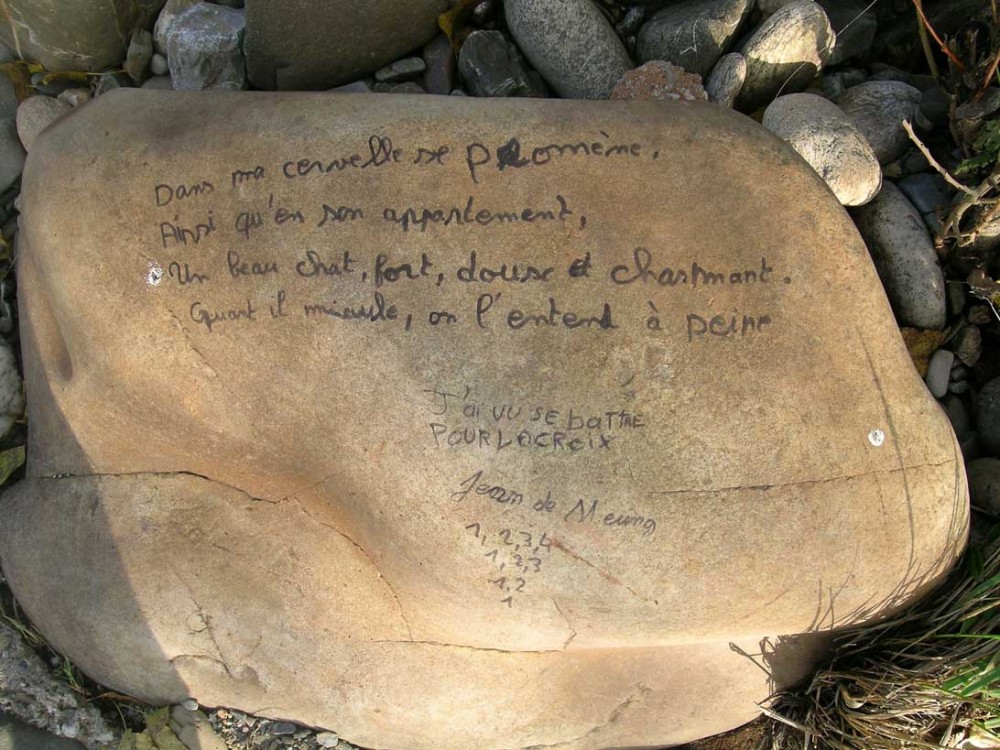 Dans ma cervelle se promène,
Ainsi qu'en son appartement,
Un beau chat, fort, doux et charmant.
Quant il miaule, on l'entend à peine
J'ai VU SE baTTRE
POUR LACROIX
Jean de Meung
1, 2, 3, 4
1, 2, 3
1, 2
1